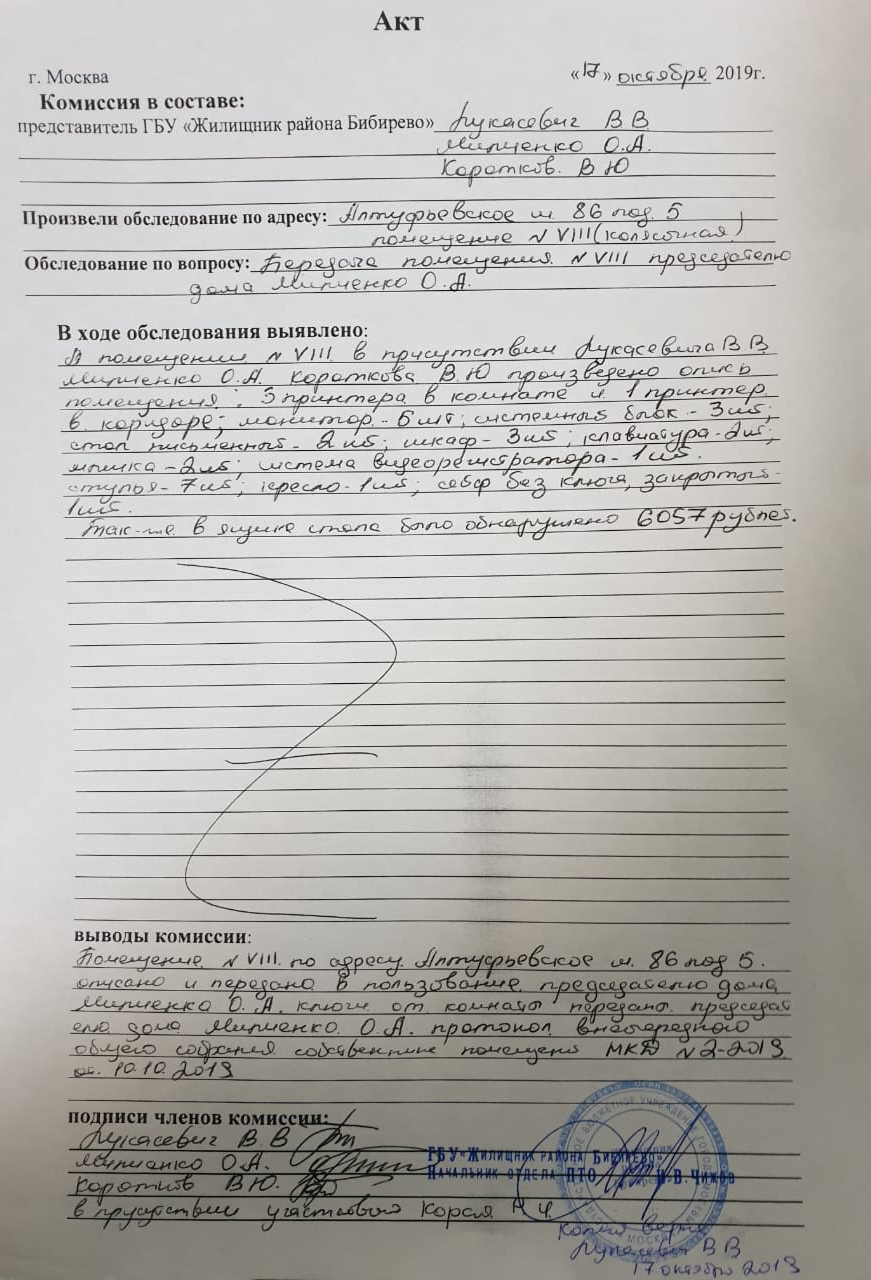 Акт
г. Москва «17» октября 2019г.
Комиссия в составе:
представитель ГБУ «Жилищник района Бибирево» Лукасевич В В
Милиенко О.А.
Коротков. В Ю
Произвели обследование по адресу: Алтуфьевское ш. 86 под. 5
помещение N VIII (колясочная)
Обследование по вопросу: Передача помещения N VIII председателю
дома Милиенко О.А.
В ходе обследования выявлено:
В помещении N VIII в присутствии Лукасевича В В
Милиенко О.А. Короткова В.Ю произведено опись
помещения: 3 принтера в комнате и 1 принтер
в коридоре; монитор - 6 шт; системный блок - 3 шт;
стол письменный - 2 шт; шкаф - 3 шт; клавиатура - 2 шт;
мышка - 2 шт; система видеорегистратора - 1 шт.
стулья - 7 шт; кресло - 1 шт; сейф без ключа, закрытый -
1 шт.
Так-же в ящике стола было обнаружено 6057 рублей.
выводы комиссии:
Помещение N VIII. по адресу Алтуфьевское ш. 86 под 5.
описано и передано в пользование председателю дома
Милиенко О.А. ключи от комнаты переданы председат
елю дома Милиенко О.А. протокол внеочередного
общего собрания собственников помещений МКД N 2-2019
от. 10.10.2019
подписи членов комиссии:
Лукасевич В.В
Милиенко О.А.
Коротков В.Ю.
в присутствии участкового
ГБУ «Жилищник района Бибирево»
Начальник отдела ПТО В. Чижов
Копия верна
Лукасевич В В
17 октября 2019